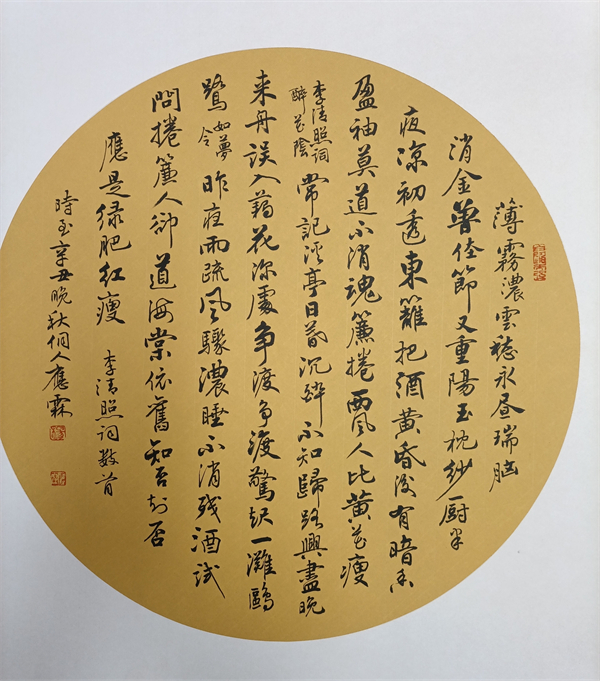 薄霧濃雲愁永昼瑞脑
消金獸佳節又重陽玉枕紗厨半
夜凉初透東籬把酒黄昏後有暗香
盈袖莫道不消魂簾捲西風人比黄花瘦
李清照詞
醉花陰
常記溪亭日暮沉醉不知歸路興盡晚
来舟误入藕花深處争渡争渡驚起一灘鷗
鷺
如夢
令
昨夜雨疏风驟濃睡不消残酒试
問捲簾人卻道海棠依舊知否知否
應是绿肥红瘦
李清照词数首
時在辛丑晚秋佀人應霖